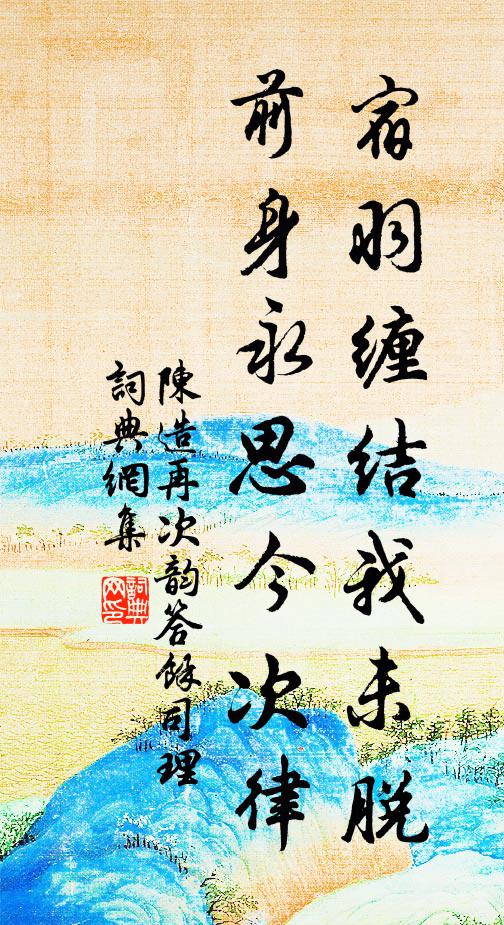 宿羽缠结我未脱
前身永思今次律
陳造再次韵答餘司理
詞典網集
詞典网印